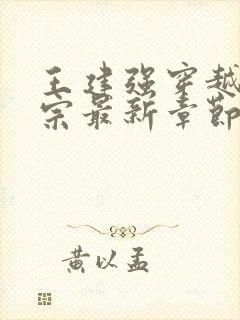 王建强穿越
宗最新章节
黄以孟